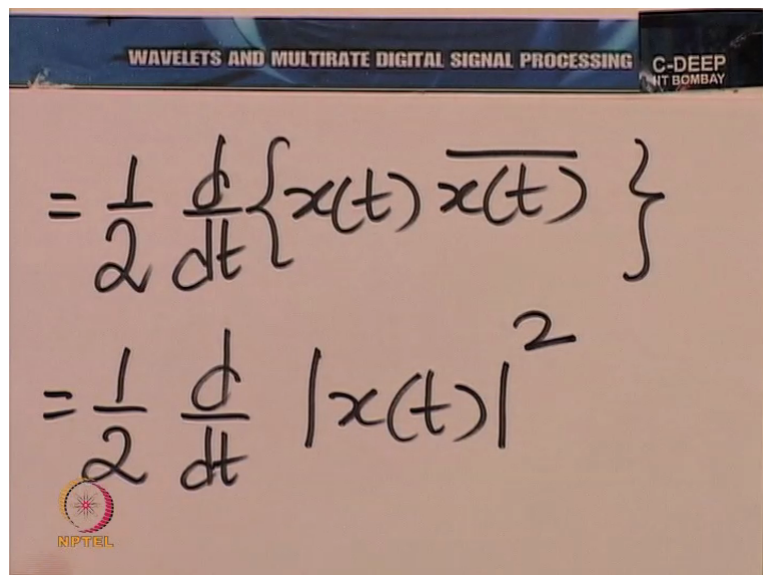 WAVELETS AND MULTIRATE DIGITAL SIGNAL PROCESSING
C-DEEP
IIT BOMBAY
= 1/2 d/dt { x(t) \overline{x(t)} }
= 1/2 d/dt |x(t)|²
NPTEL